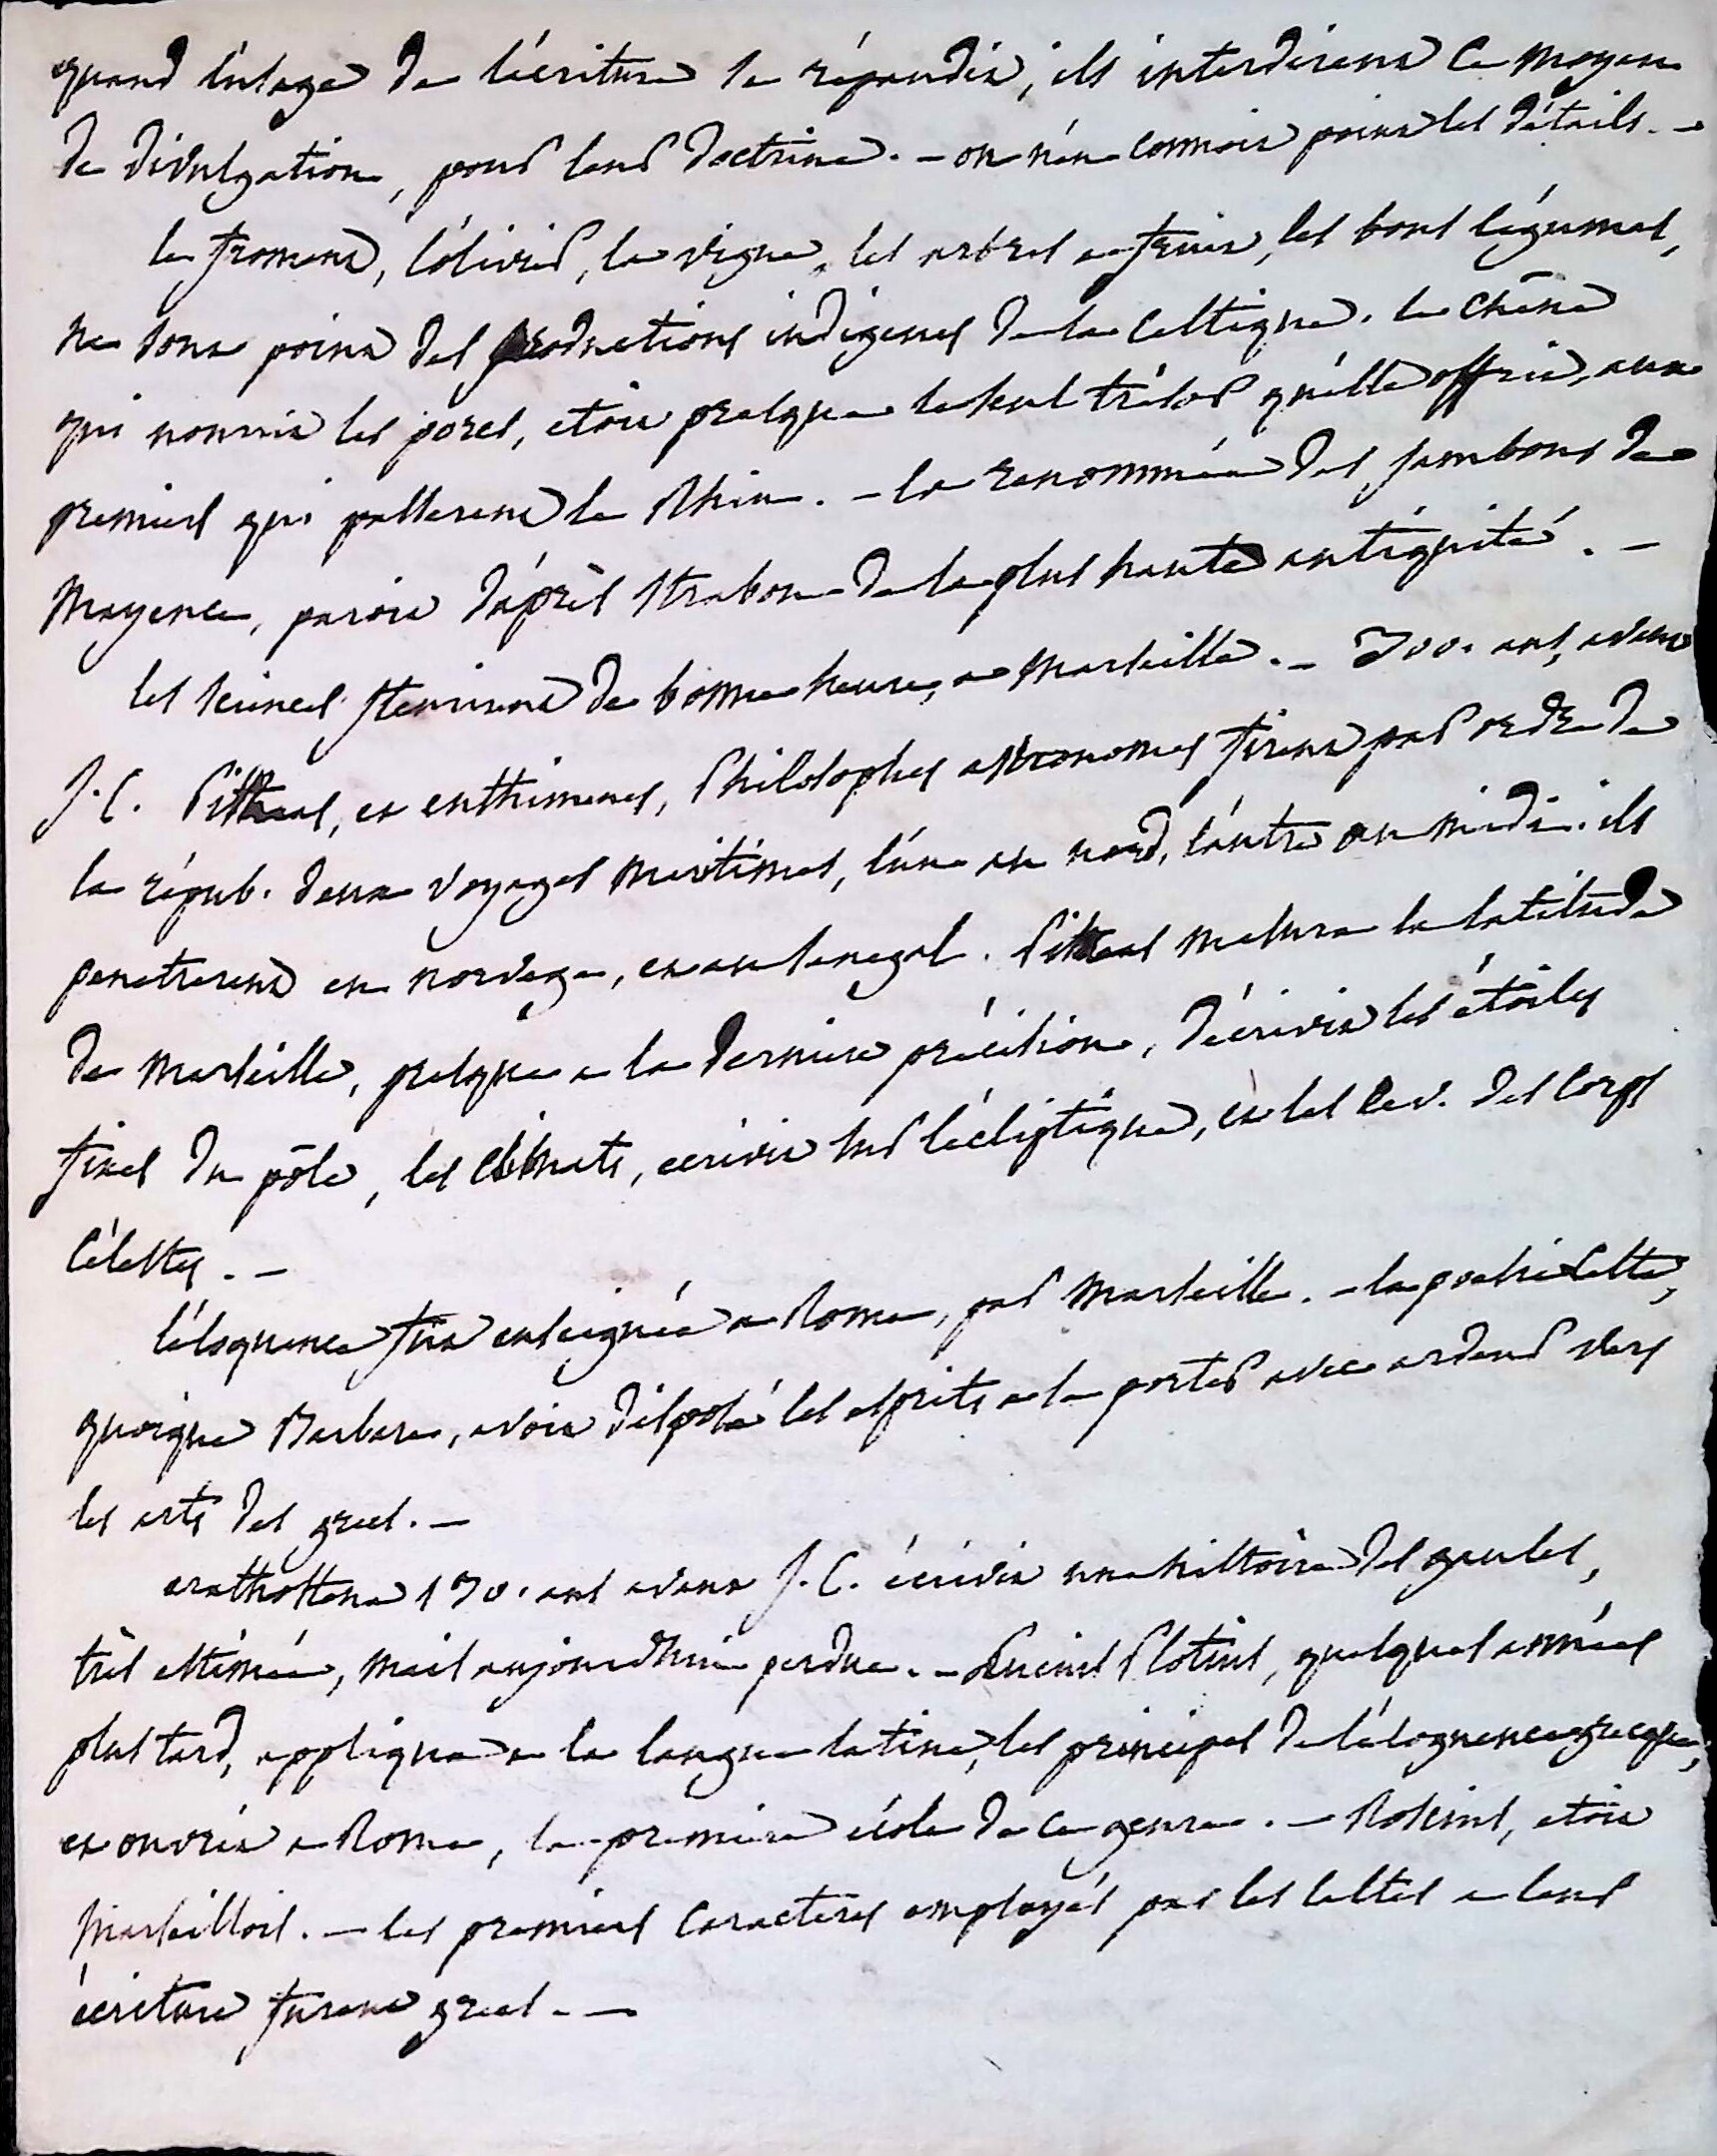 quand l'usage de l'écriture se répandit, ils interdirent ce moyen
de divulgation, pour leur doctrine. - on n'en connoit point les détails. -
le froment, l'olivier, la vigne, les arbres a fruit, les bons légumes,
ne sont point des productions indigenes de la Celtique. le chêne
qui nourrit les porcs, etoit presque le seul trésor qu'elle offrit, aux
premiers qui passerent le Rhin. - la renommée des jambons de
Mayence, paroit d'après Strabon de la plus haute antiquité. -
les sciences fleurirent de bonne heure, a Marseille. - 300. ans, avant
J.C. Pitheas, et enthimenes, Philosophes astronomes firent par ordre de
la répub. deux voyages maritimes, l'un au nord, l'autre au midi. ils
penetrerent en norvege, et au senegal. Pitheas mesura la latitude
de Marseille, presque a la derniere précision, décrivit les étoiles
fixes du pôle, les climats, ecrivit sur l'écliptique, et les rev. des corps
célestes. -
l'éloquence fut enseignée a Rome, par Marseille. - la poesie celte,
quoique Barbare, avoit disposé les esprits a se porter avec ardeur vers
les arts des grecs. -
erathostene 170. ans avant J.C. écrivit une histoire des gaules,
très estimée, mais aujourdhui perdue. - Lucius Plotius, quelques années
plus tard, appliqua a la langue latine, les principes de l'éloquence grecque,
et ouvrit a Rome, la premiere école de ce genre. - Roscius, etoit
Marseillois. - les premiers caracteres employés par les celtes a leur
écriture furent grecs. -